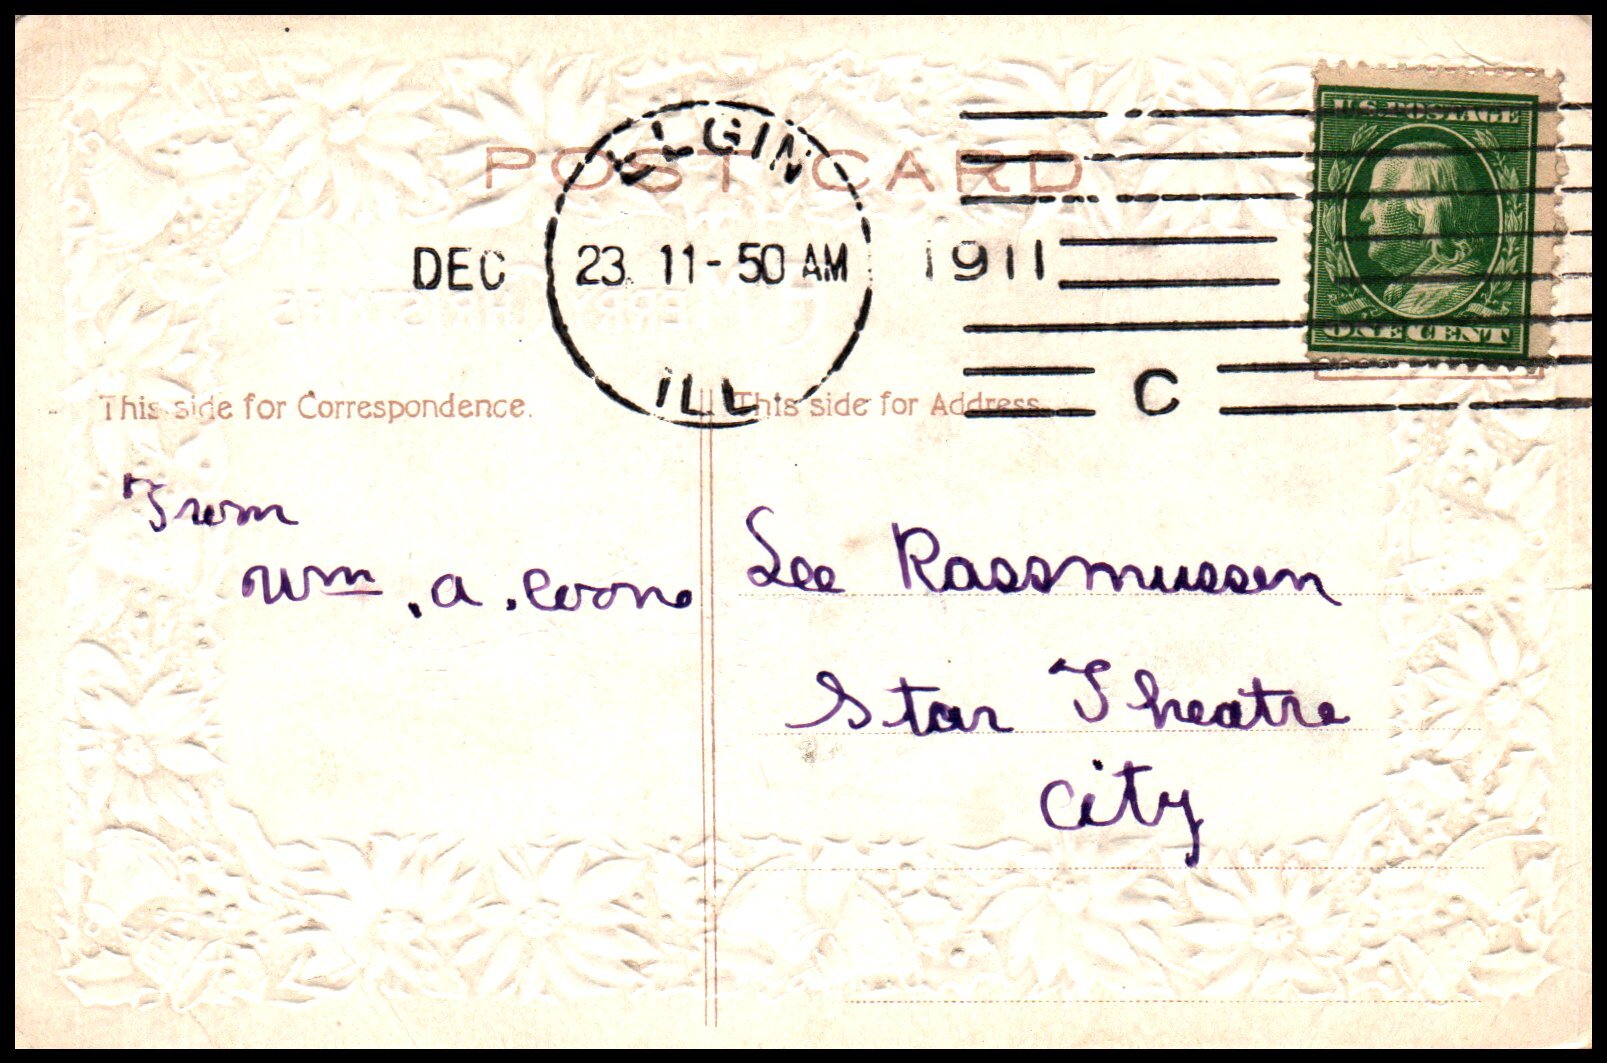 POST CARD
ELGIN
DEC 23 11-50 AM 1911
ILL
C
U.S. POSTAGE
ONE CENT
This side for Correspondence.
This side for Address.
From
Wm. A.
Lee Rassmussen
Star Theatre
City